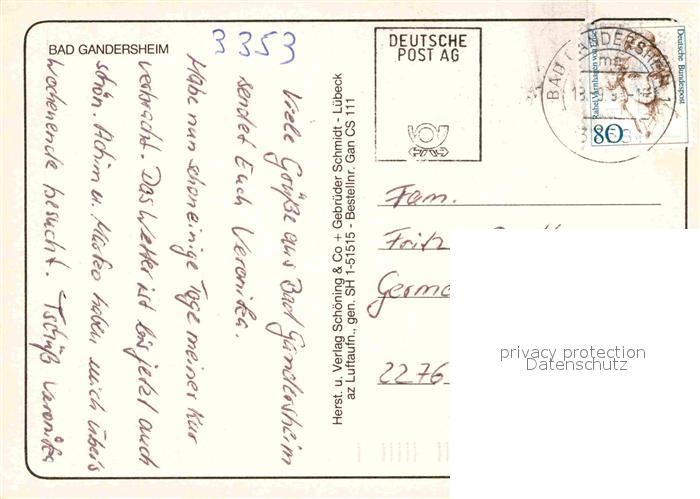 BAD GANDERSHEIM
3353
Viele Grüße aus Bad Gandersheim
sendet Euch Veronika.
Habe nun schon einige Tage meiner Kur
verbracht. Das Wetter ist bis jetzt auch
schön. Achim u. Marko haben mich über's
Wochenende besucht. Tschüß Veronika
Herst. u. Verlag Schöning & Co + Gebrüder Schmidt - Lübeck
az Luftaufn., gen. SH 1-51515 - Bestellnr. Gan CS 111
DEUTSCHE
POST AG
BAD GANDERSHEIM 1
Deutsche Bundespost
80
Fam.
Fritz
Germe
2276
privacy protection
Datenschutz